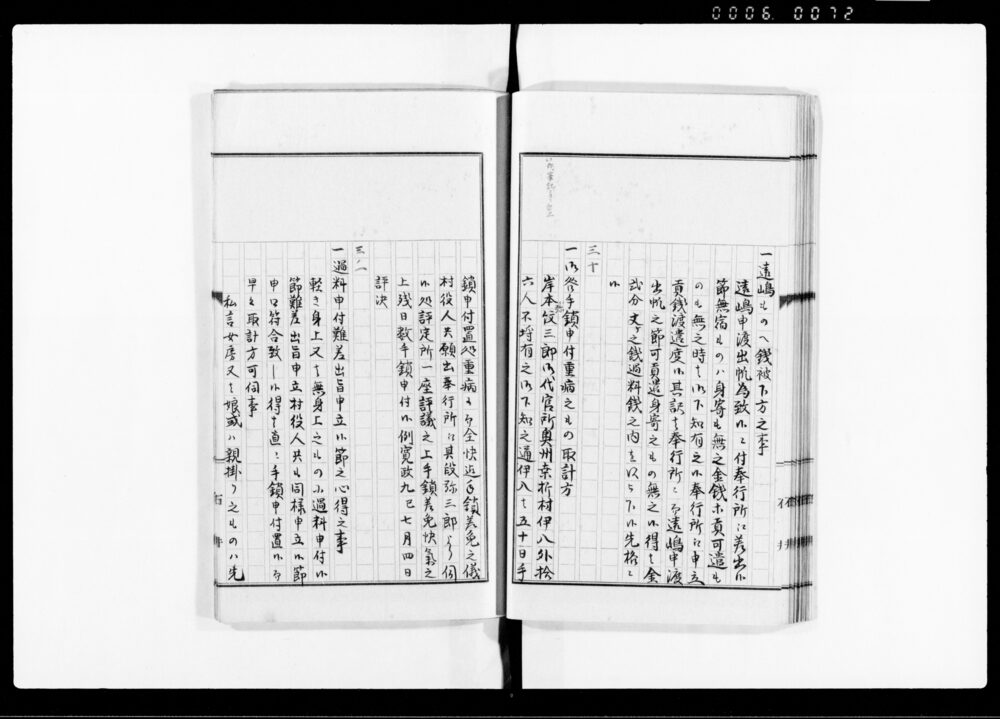 0006 0072
一遠嶋ものへ銭被下方之事
遠嶋申渡出帆為致候ニ付奉行所江差出候
節無宿ものハ身寄も無之金銭等貢可遣も
のも無之時は御下知有之候奉行所江申立
貢銭渡遣度候其訳は奉行所ニ而遠嶋申渡
出帆之節可貢遣身寄之もの無之候得は金
弐分丈ケ之銭過料銭之内を以被下候先格ニ
候
三十
一御咎手鎖申付重病之もの取計方
岸本弥三郎御代官所奥州桑折村伊八外拾
六人不埒有之御下知之通伊八は五十日手
鎖申付置処重病ニ付全快迄手鎖差免之儀
村役人共願出奉行所江其段弥三郎より伺
候処評定所一座評議之上手鎖差免快気之
上残日数手鎖申付候例寛政九巳七月四日
評決
三ノ一
一過料申付難差出旨申立候節之心得之事
軽き身上又は無身上之もの江過料申付候
節難差出旨申立村役人共も同様申立候節
申口符合致し候得は直ニ手鎖申付置候而
早々取計方可伺事
私言女房又は娘或ハ親掛り之ものハ先